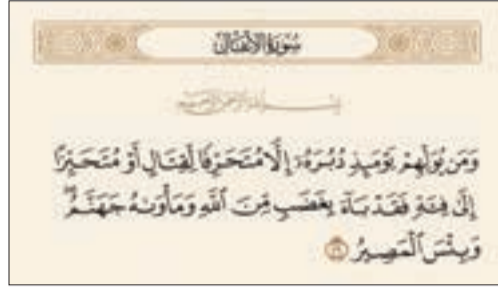 سُورَةُ الأَنفَال
بِسْمِ اللَّهِ الرَّحْمَٰنِ الرَّحِيمِ
وَمَن يُوَلِّهِمْ يَوْمَئِذٍ دُبُرَهُۥٓ إِلَّا مُتَحَرِّفًا لِّقِتَالٍ أَوْ مُتَحَيِّزًا
إِلَىٰ فِئَةٍ فَقَدْ بَآءَ بِغَضَبٍ مِّنَ ٱللَّهِ وَمَأْوَىٰهُ جَهَنَّمُ ۖ
وَبِئْسَ ٱلْمَصِيرُ ١٦